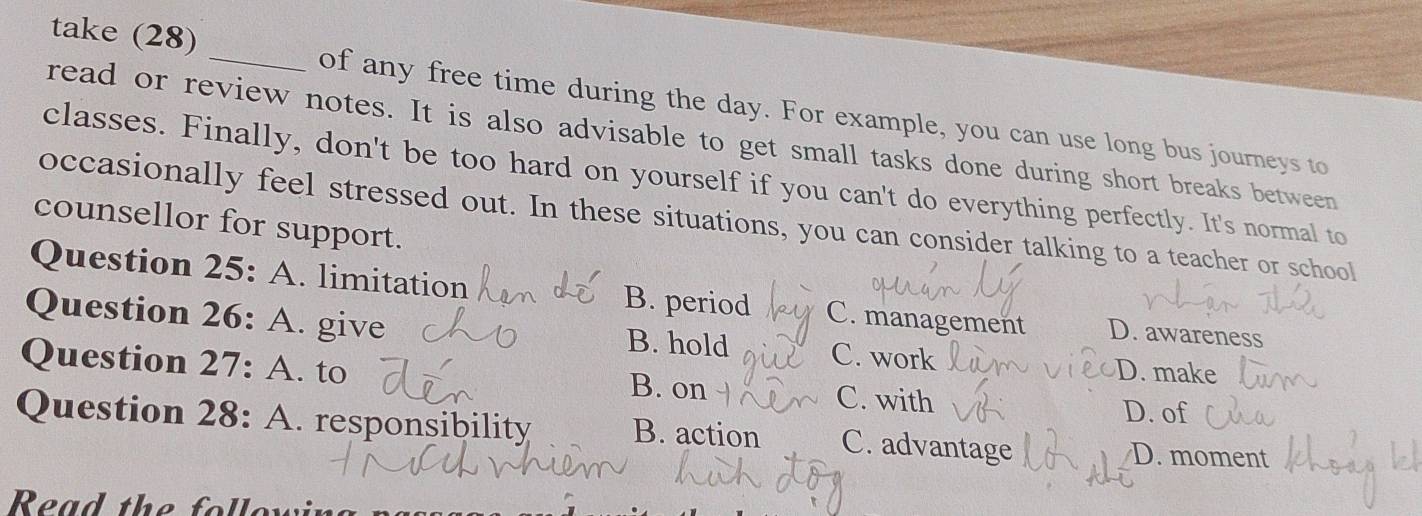 take (28) ______ of any free time during the day. For example, you can use long bus journeys to
read or review notes. It is also advisable to get small tasks done during short breaks between
classes. Finally, don't be too hard on yourself if you can't do everything perfectly. It's normal to
occasionally feel stressed out. In these situations, you can consider talking to a teacher or school
counsellor for support.
quản lý
Question 25: A. limitation hạn B. period kỳ C. management D. awareness
Question 26: A. give cho B. hold giữ C. work làm việc D. make làm
Question 27: A. to đến B. on trên C. with với D. of của
Question 28: A. responsibility B. action C. advantage lợi thế D. moment khoảng
trách nhiệm hành động
Read the following